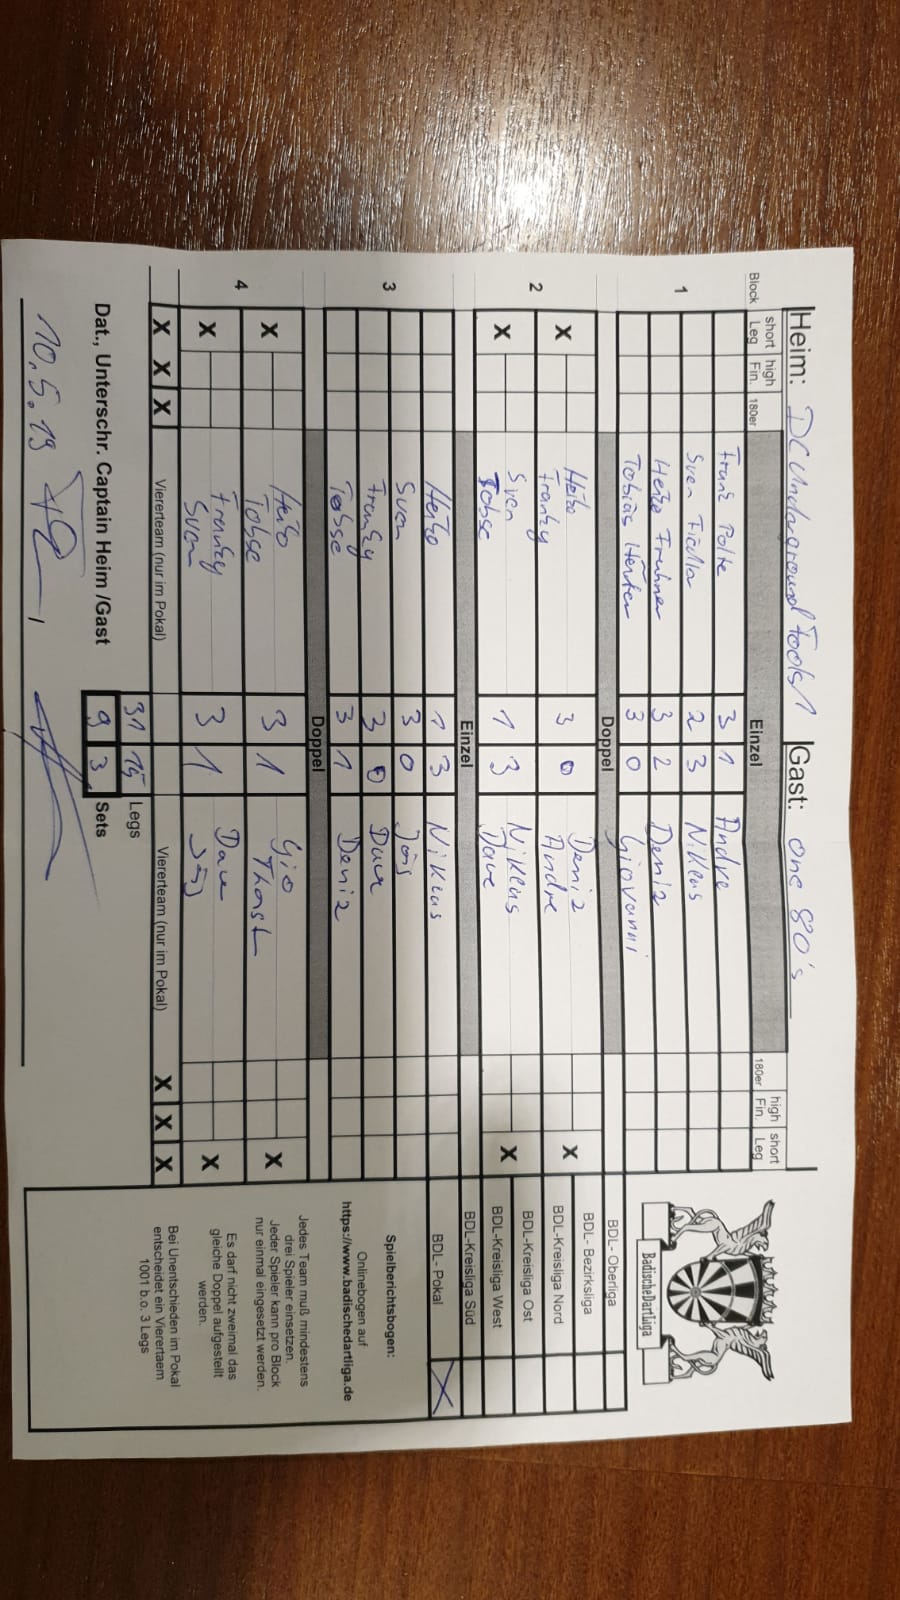 Heim: DC Underground Fools 1 Gast: one 80's
Block short Leg high Fin. 180er Einzel 180er high Fin. short Leg
1
Franz Polte 3 1 Andre
Sven Fidlla 2 3 Niklas
Heiko Frahner 3 2 Deniz
Tobias 3 0 Giovanni
Doppel
2
X Heiko Franky 3 0 Deniz Andre X
X Sven Tobse 1 3 Niklas Dave X
Einzel
3
Heiko 1 3 Niklas
Sven 3 0 Jörg
Franky 3 0 Dave
Tobse 3 1 Deniz
Doppel
4
X Heiko Tobse 3 1 Gio Thorst X
X Franky Sven 3 1 Dave Jörg X
X X X Viererteam (nur im Pokal) Viererteam (nur im Pokal) X X X
31 15 Legs
Dat., Unterschr. Captain Heim /Gast 9 3 Sets
10.5.19
BadischeDartLiga
BDL- Oberliga
BDL- Bezirksliga
BDL-Kreisliga Nord
BDL-Kreisliga Ost
BDL-Kreisliga West
BDL-Kreisliga Süd
BDL- Pokal X
Spielberichtsbogen:
Onlinebogen auf
https://www.badischedartliga.de
Jedes Team muß mindestens
drei Spieler einsetzen.
Jeder Spieler kann pro Block
nur einmal eingesetzt werden.
Es darf nicht zweimal das
gleiche Doppel aufgestellt
werden.
Bei Unentschieden im Pokal
entscheidet ein Vierertaem
1001 b.o. 3 Legs